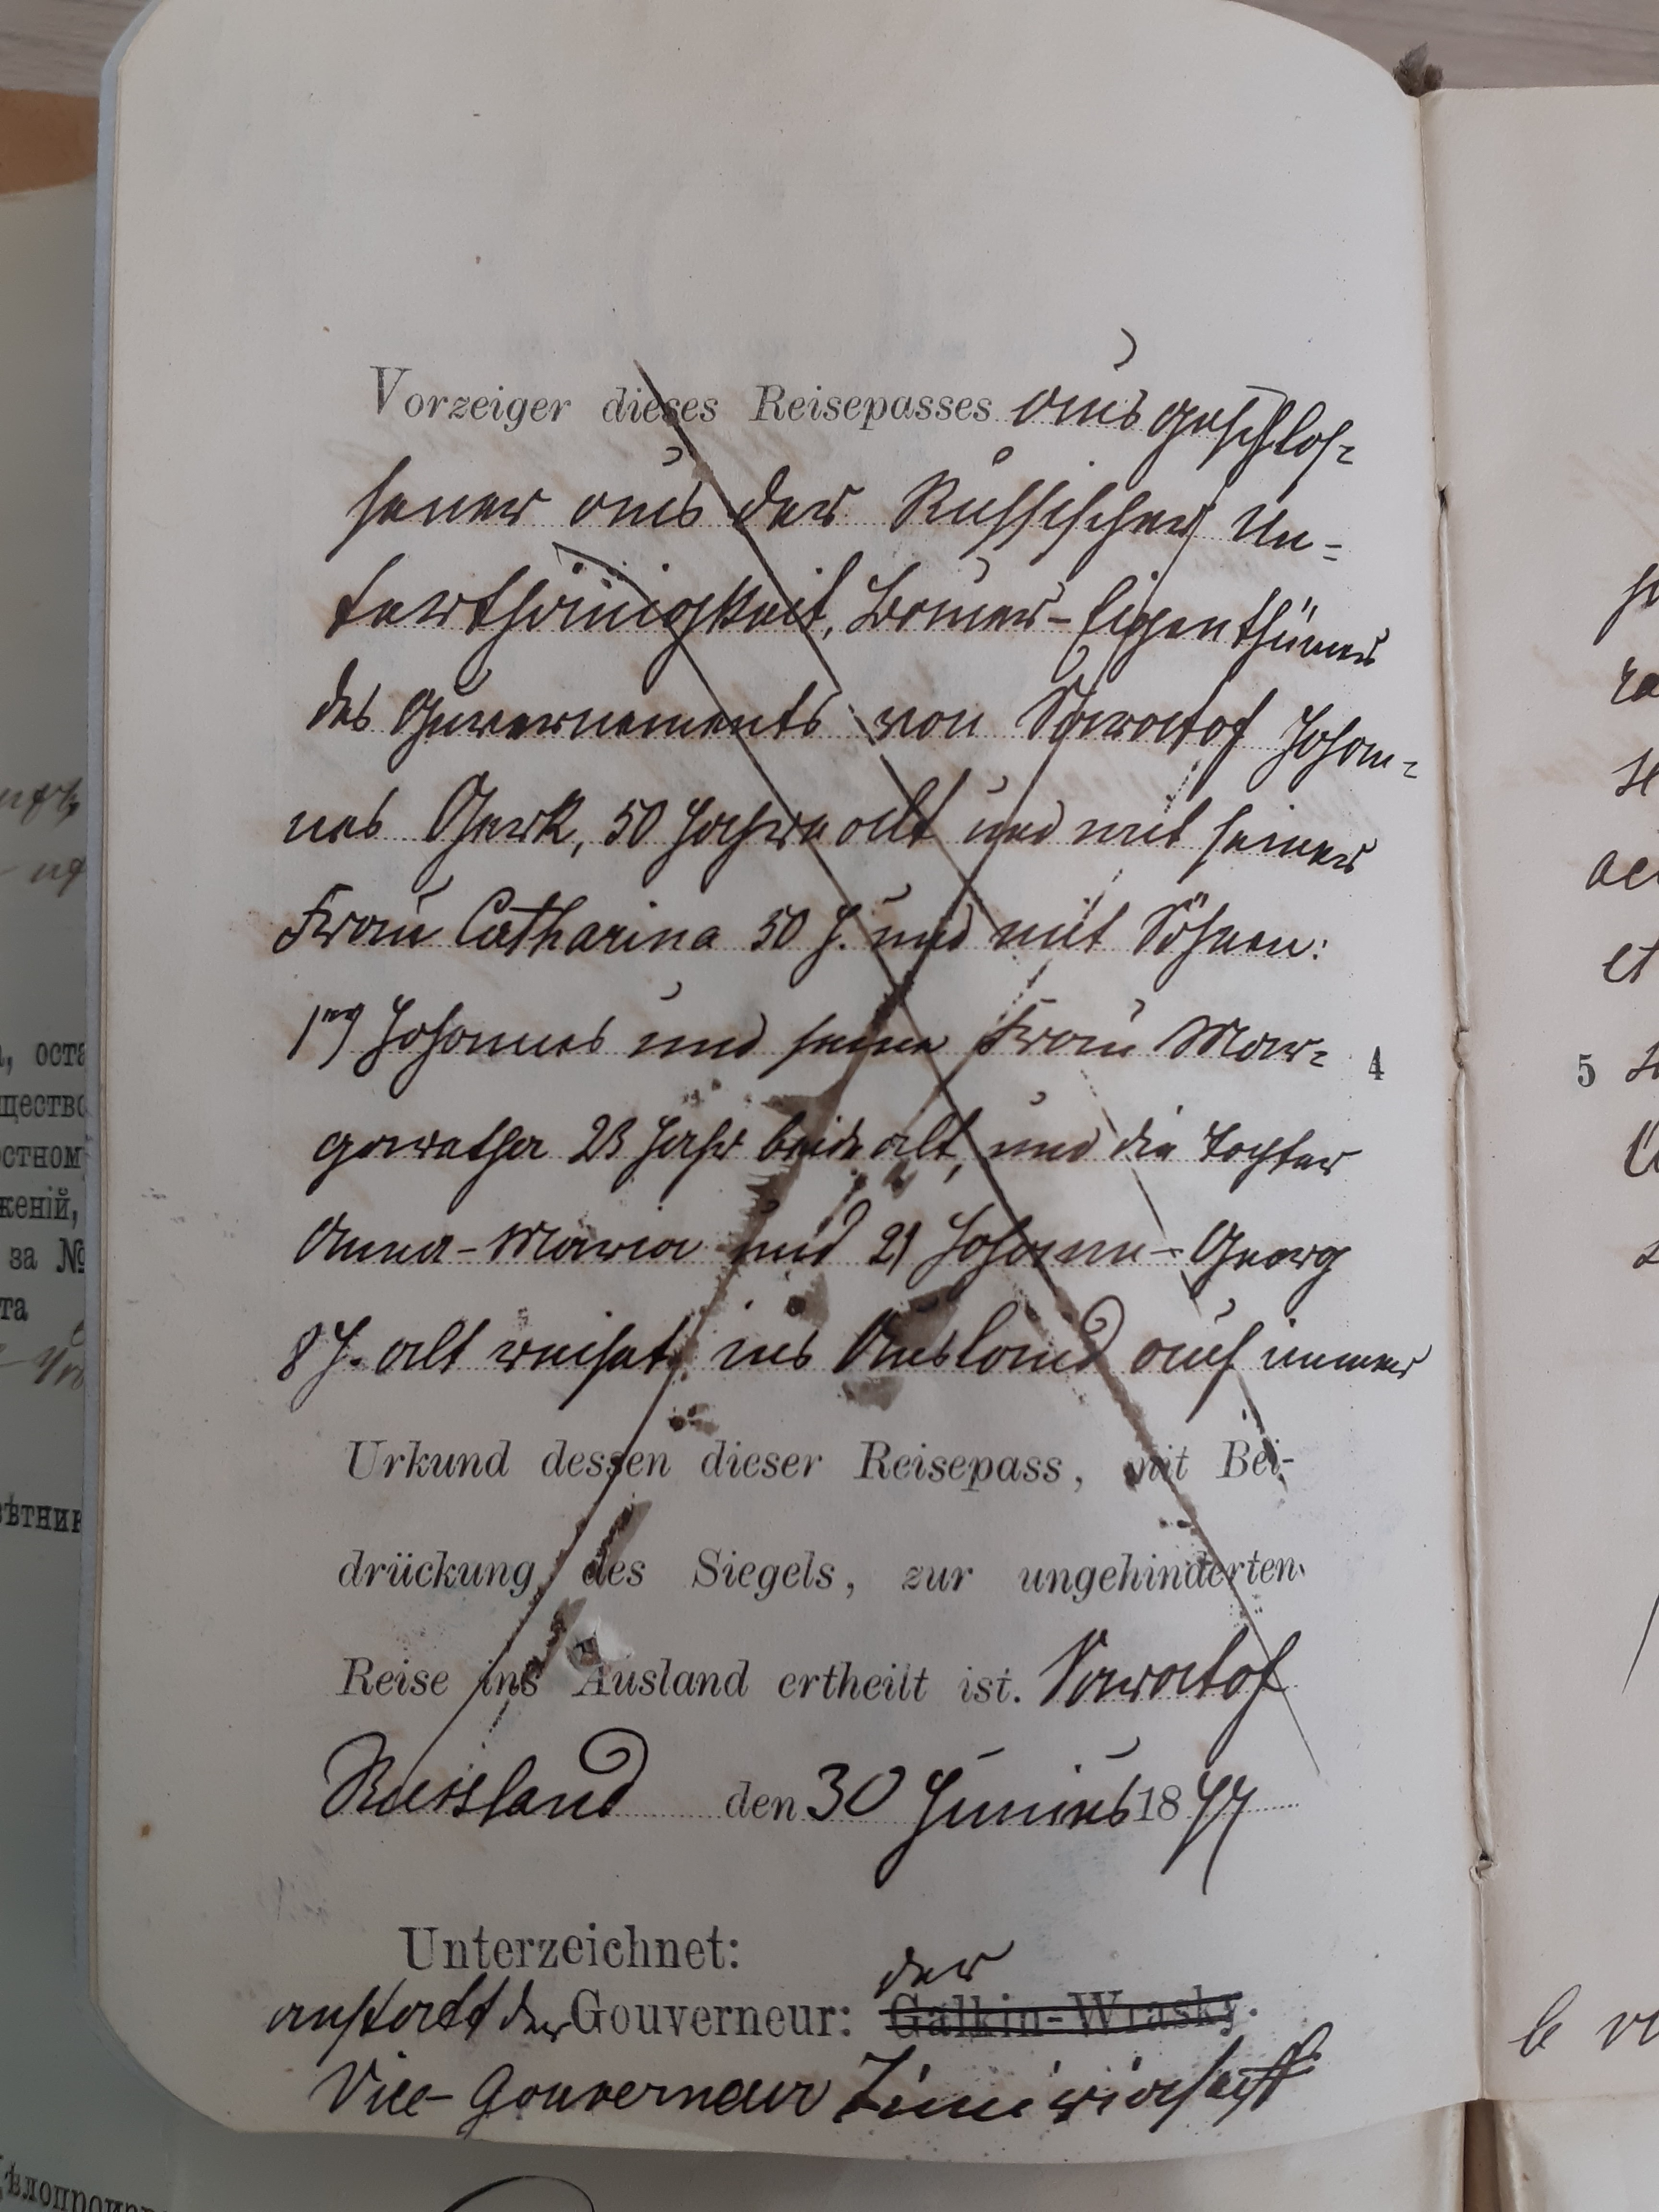 Vorzeiger dieses Reisepasses ausgeschlos=
sener aus der Russischer Un=
terthänigkeit, Bauer-Eigenthümer
des Guvernements von Sawatof Johan=
nes Gerk, 50 Jahre alt und mit seiner
Frau Catharina 50 J. und mit Söhnen:
1) Johannes und seine Frau Mar=
garetha 23 Jahr beide alt, und die Tochter
Anna-Maria und 2) Johann-Georg
8 J. alt reiset ins Ausland auf immer
Urkund dessen dieser Reisepass, mit Bei-
drückung des Siegels, zur ungehinderten
Reise ins Ausland ertheilt ist. Sawatof
Russland den 30 Junius 1877
Unterzeichnet:
der
anstatt der Gouverneur: Galkin-Wrasky.
Vice-Gouverneur
4
5
оста
ществ
остном
женій,
за №
та